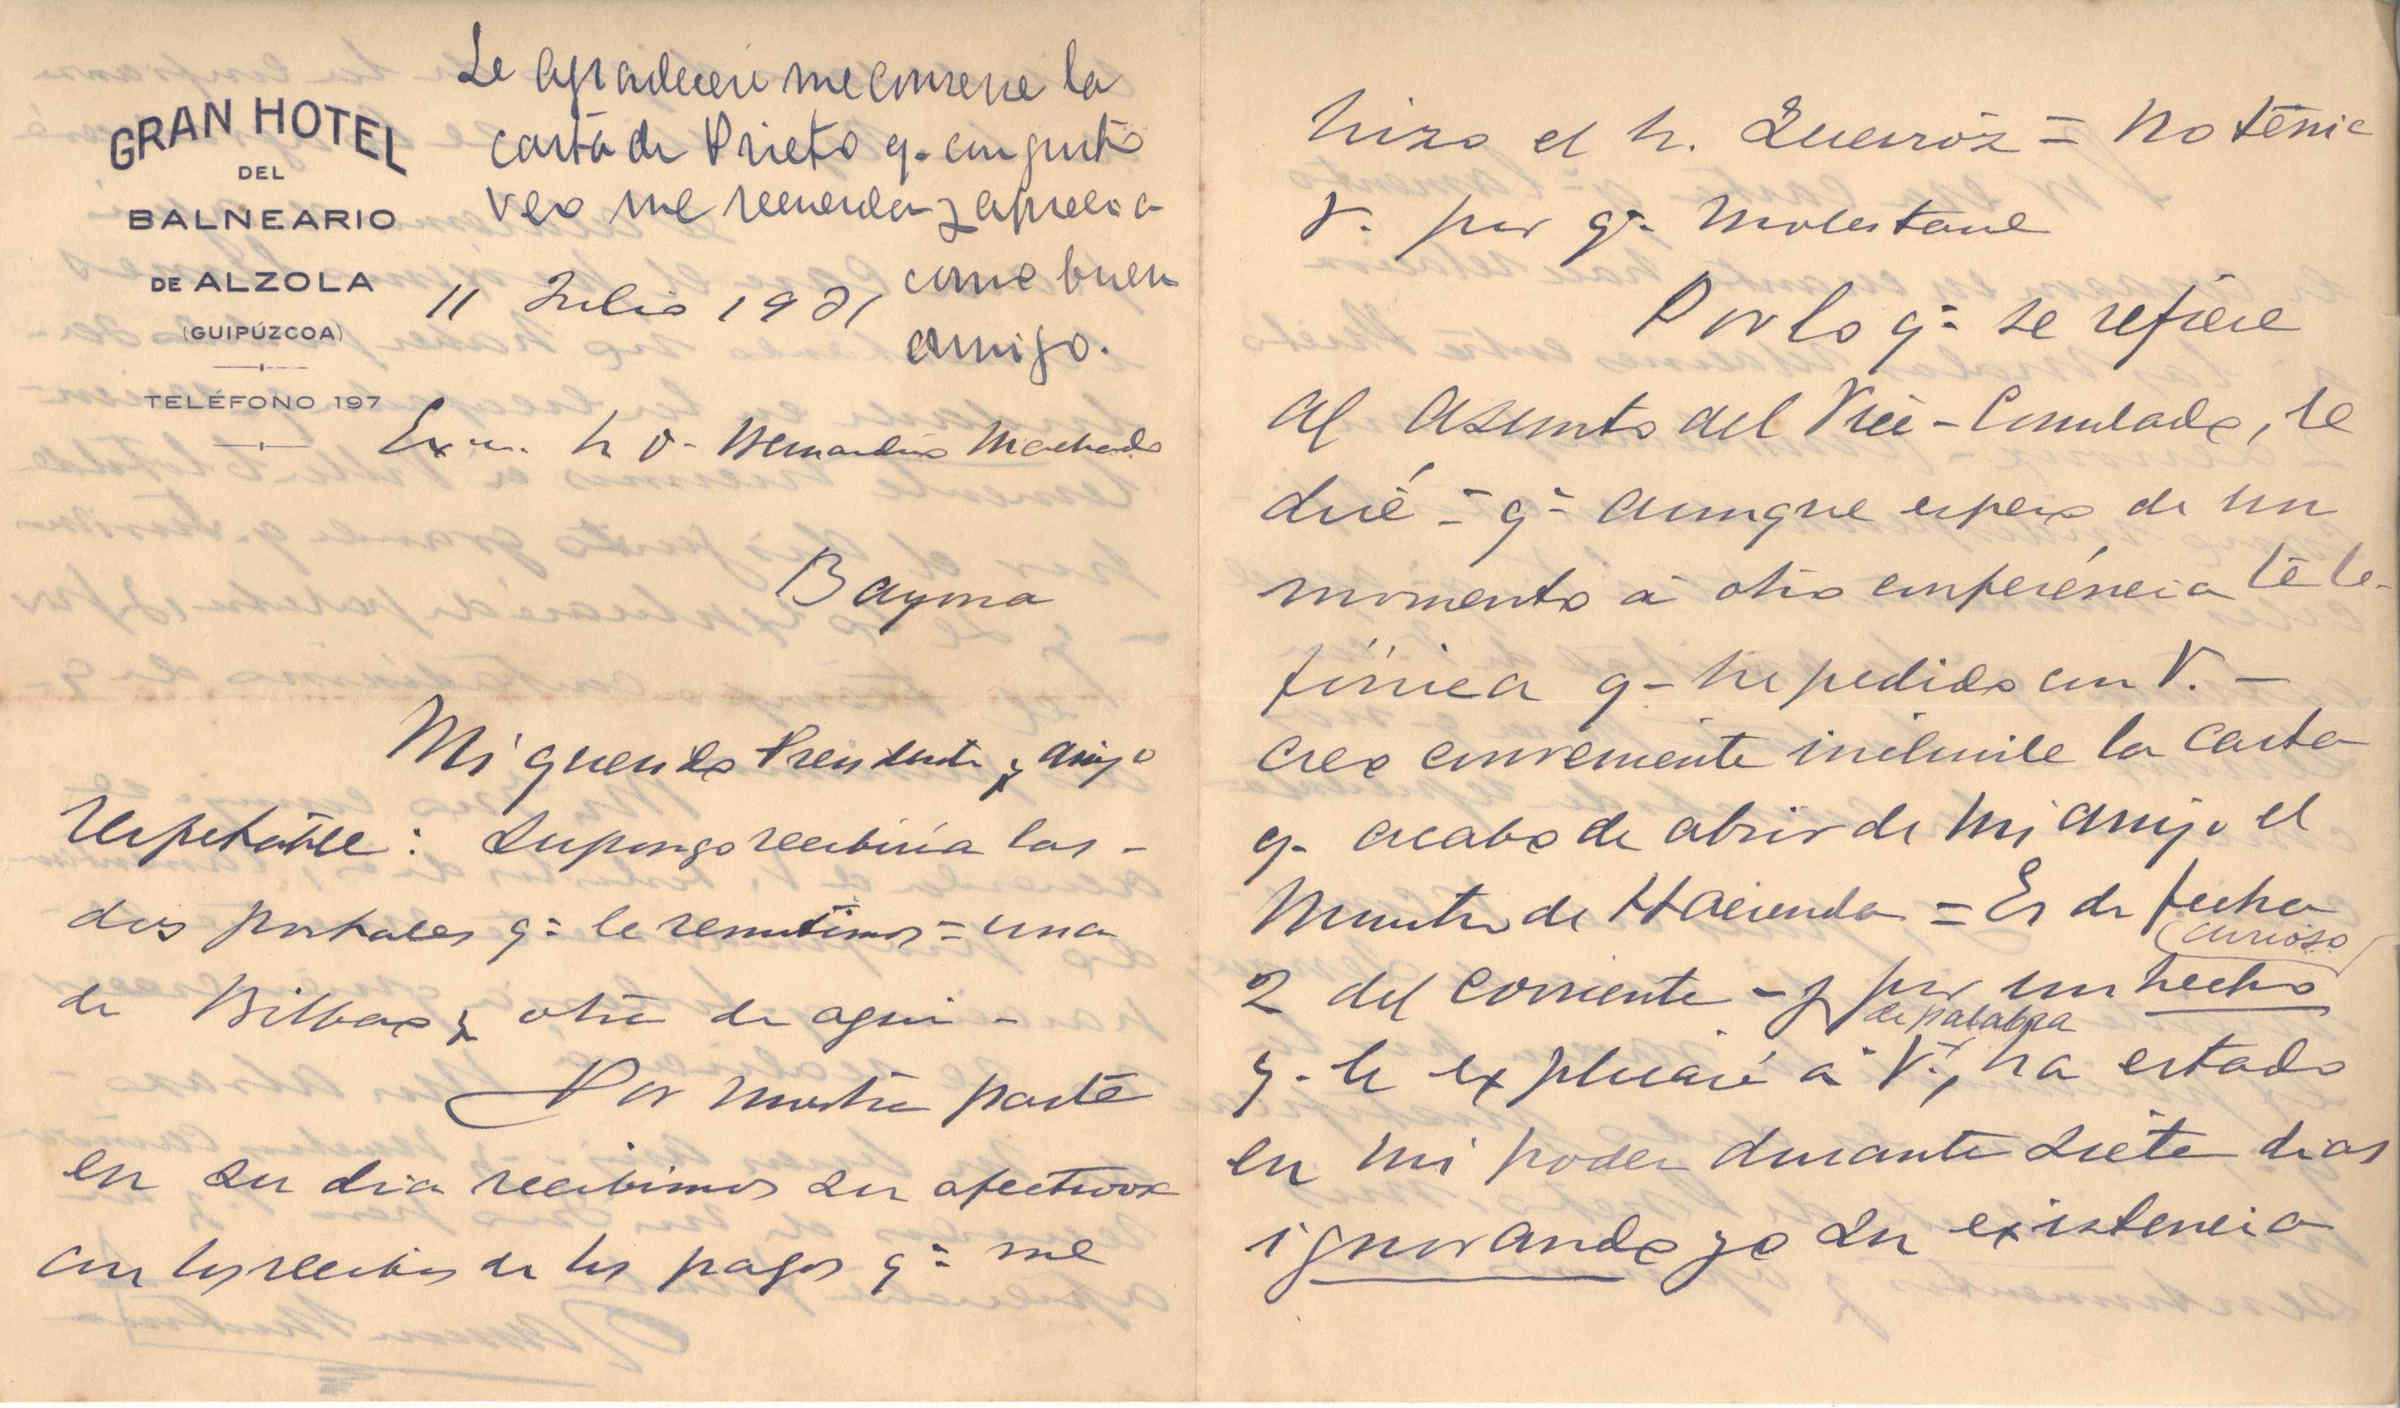 GRAN HOTEL
DEL
BALNEARIO
DE ALZOLA
(GUIPÚZCOA)
TELÉFONO 197
Le agradeceré me conserve la
carta de Prieto q. con gusto
veo me recuerda y aprecia
como buen
amigo.
11 Julio 1931
Exm. Sr D. Bernardino Machado
Bayona
Mi querido Presidente y amigo
respetable: Supongo recibiría las -
dos postales q= le remitimos = una
de Bilbao y otra de aqui -
Por nuestra parte
en su dia recibimos su afectuosa
con los recibos de los pagos q= me
hizo el Sr. Queiróz = No tenia
V. por q= molestarse
Por lo q= se refiere
al asunto del Vice-Consulado, le
diré = q= aunque espero de un
momento á otro conferéncia tele-
fónica q- he pedido con V. -
creo conveniente incluirle la carta
q. acabo de abrir de mi amigo el
Ministro de Hacienda = Es de fecha
2 del corriente - y por un hecho
(curioso)
q. le explicaré á V., ha estado
de palabra
en mi poder durante siete dias
ignorando yo su existencia